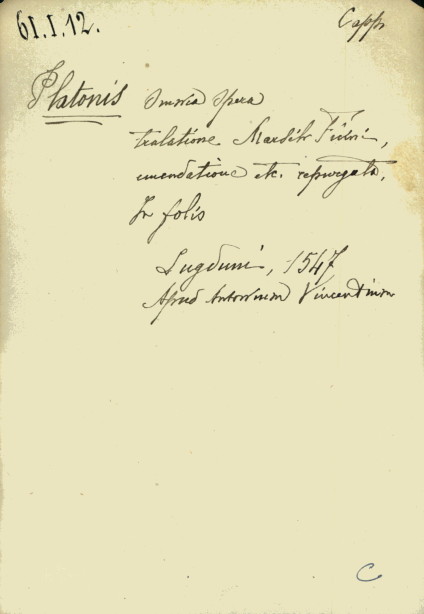 61.I.12.
Capps
Platonis omnia opera
tralatione Marsilii Ficini,
emendatione etc. repurgata.
In folis
Lugduni, 1547
Apud Antonium Vincentium
C